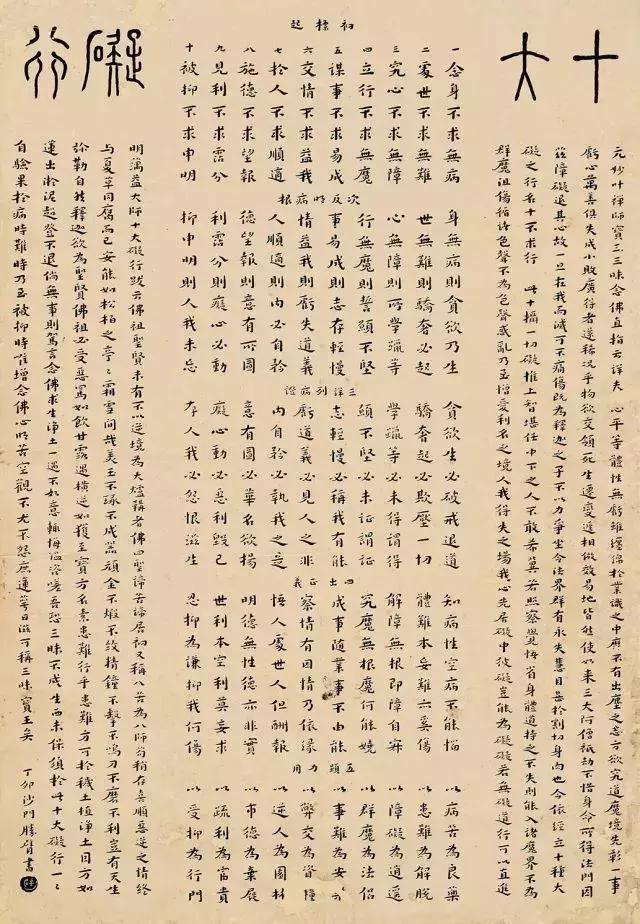 十大礙行
元妙叶禪師寶王三昧念佛直指云詳夫 心平等體性無虧雖纏綿於業識之中靡不有出塵之志方欲究道魔境先彰一事
虧心萬善俱失成小敗廣得者還稀況乎物欲交傾死生遷變遞相倣效易地皆然使如來三大阿僧祇劫不惜身命所得法門因
茲障礙退其心故一旦在我而滅可不痛傷既為釋迦之子不以力爭坐令法界群有永失慧目甚於割切身肉也今依經立十種大
礙之行名十不求行 此十種一切礙惟上智堪任中下之人不敢希冀若照察覺悟省身體道持之不失則能入諸魔界不為
群魔沮傷循諸色聲不為色聲惑亂乃至憎愛利名之境人我得失之場我心先居礙中彼礙豈能為礙礙若無礙道行可以直進
初標起
一念身不求無病
二處世不求無難
三究心不求無障
四立行不求無魔
五謀事不求易成
六交情不求益我
七於人不求順適
八施德不求望報
九見利不求霑分
十被抑不求申明
次反明病根
身無病則貪欲乃生
世無難則驕奢必起
心無障則所學躐等
行無魔則誓願不堅
事易成則志存輕慢
情益我則虧失道義
人順適則內必自矜
德望報則意有所圖
利霑分則癡心必動
抑申明則人我未忘
三詳列病證
貪欲生必破戒退道
驕奢起必欺壓一切
學躐等必未得謂得
願不堅必未證謂證
志輕慢必稱我有能
虧道義必見人之非
內自矜必執我之是
意有圖必華名欲揚
癡心動必惡利毀己
存人我必怨恨滋生
四出正義
知病性空病不能惱
體難本妄難亦奚傷
解障無根即障自寂
究魔無根魔何能嬈
成事隨業事不由能
察情有因情乃依緣
悟人處世人但酬報
明德無性德亦非實
世利本空利莫妄求
忍抑為謙抑我何傷
五顯力用
以病苦為良藥
以患難為解脫
以障礙為逍遙
以群魔為法侶
以事難為安樂
以弊交為資糧
以逆人為園林
以市德為棄屣
以疏利為富貴
以受抑為行門
明蕅益大師十大礙行跋云佛祖聖賢未有不以逆境為大爐鞴者佛四聖諦苦諦居初又稱八苦為八師苟稍存喜順惡逆之情終
與夏草同腐而已安能如松柏之亭亭霜雪間哉美玉不琢不成器頑金不煅不致精鐘不擊不鳴刀不磨不利豈有天生
彌勒自然釋迦欲為聖賢佛祖必受惡罵如飲甘露遇橫逆如獲至寶方名素患難行乎患難方可於穢土植淨土因方如
蓮出淤泥超登不退倘無事則駕言念佛求生淨土一遇不如意輒悔咨嗟喜怨三昧不成生西未保須於此十大礙行一一
自驗果於病時難時乃至被抑時唯增念佛心明苦空觀不尤不怨庶蓮萼日滋可稱三昧寶王矣 丁卯沙門勝賢書